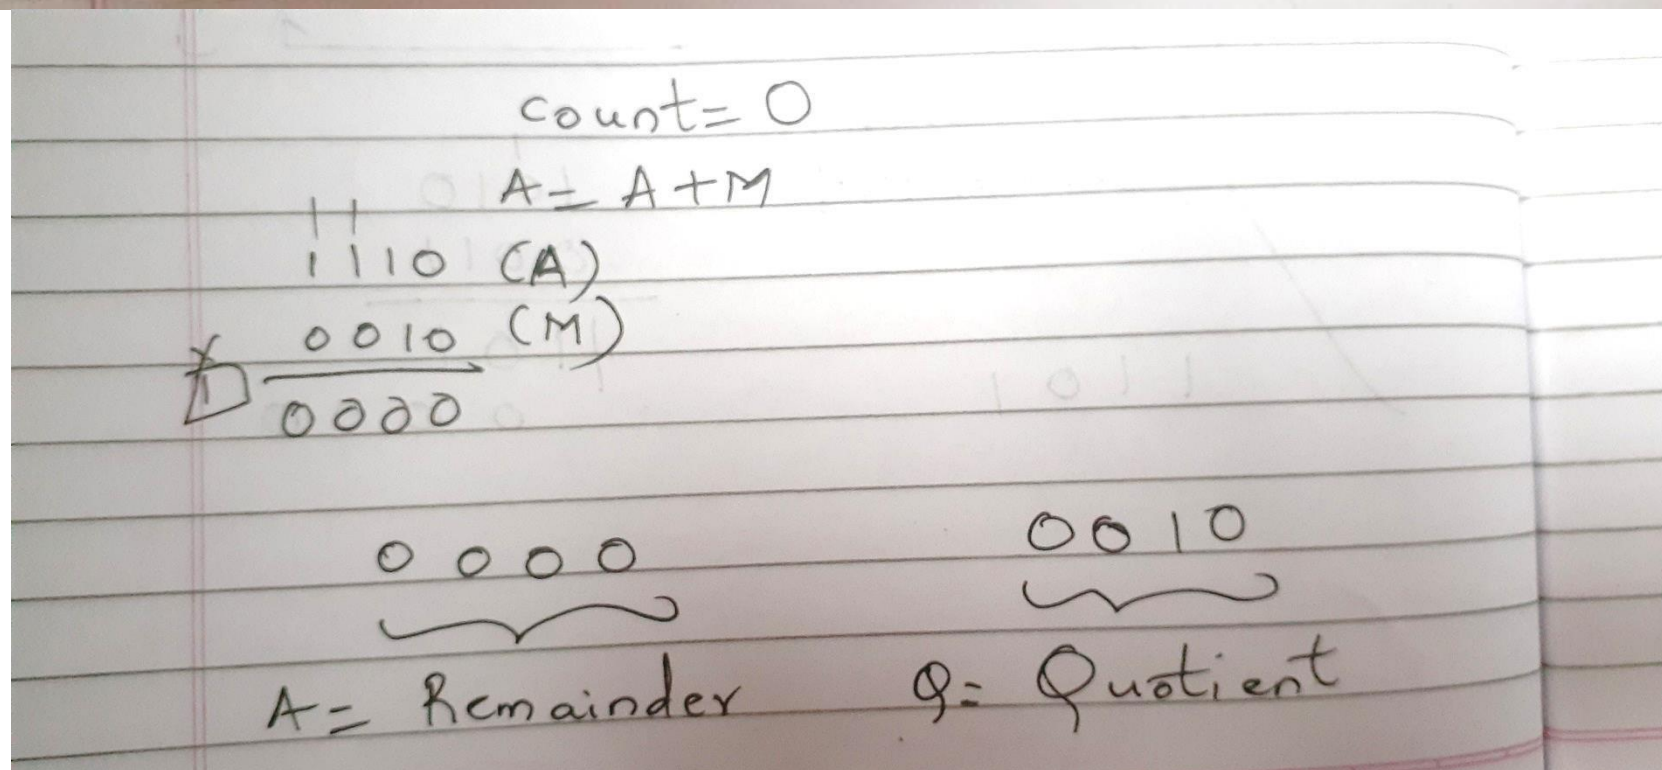 count = 0
A = A + M
1 1
1 1 1 0 (A)
0 0 1 0 (M)
1 0 0 0 0
0 0 0 0 0 0 1 0
A = Remainder Q = Quotient